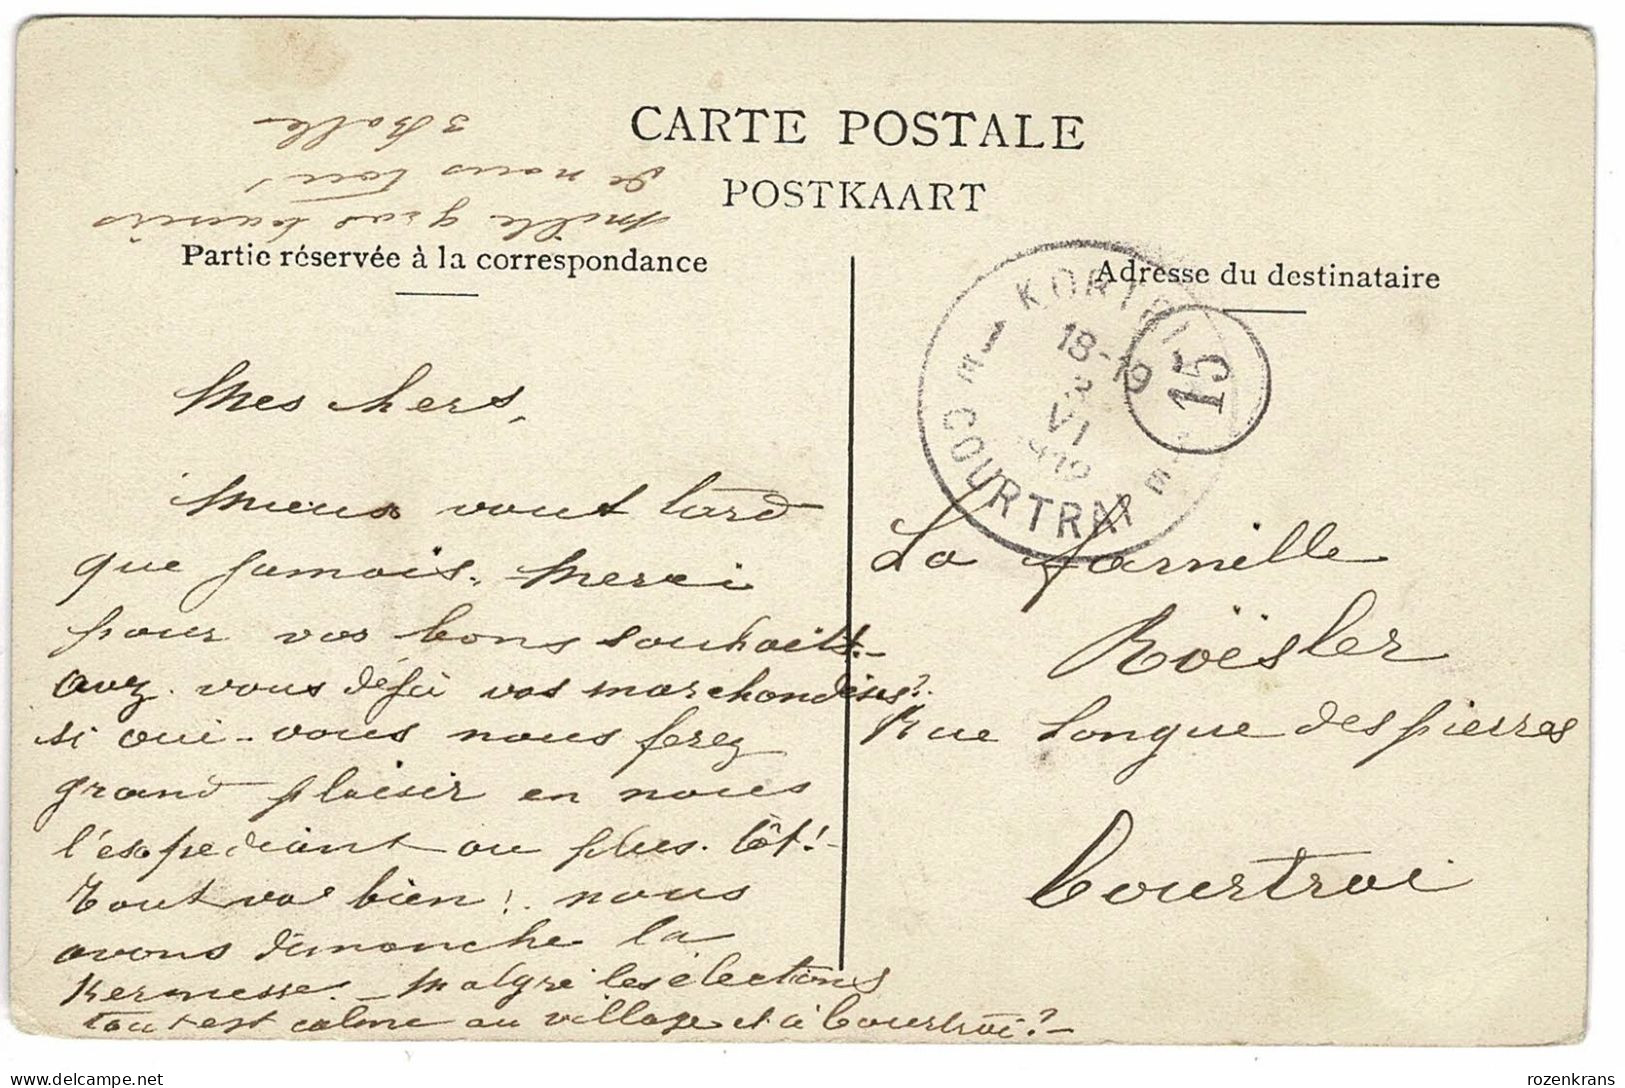 CARTE POSTALE
POSTKAART
Partie réservée à la correspondance
Adresse du destinataire
Mes chers,
Mieux vaut tard
que jamais. Merci
pour vos bons souhaits.-
avez vous déjà vos marchandises?.
si oui - vous nous ferez
grand plaisir en nous
l'expediant au plus. tôt!-
Tout va bien! nous
avons dimanche la
Kermesse. - Malgré les élections
tout est calme au village et à Courtrai?-
Mille gros baisers
de nous tous
KORTRIJK
1 E
18-19
3
VI
1912
E
COURTRAI
15
La famille
Roësler
Rue Longue des pierres
Courtrai
rozenkrans